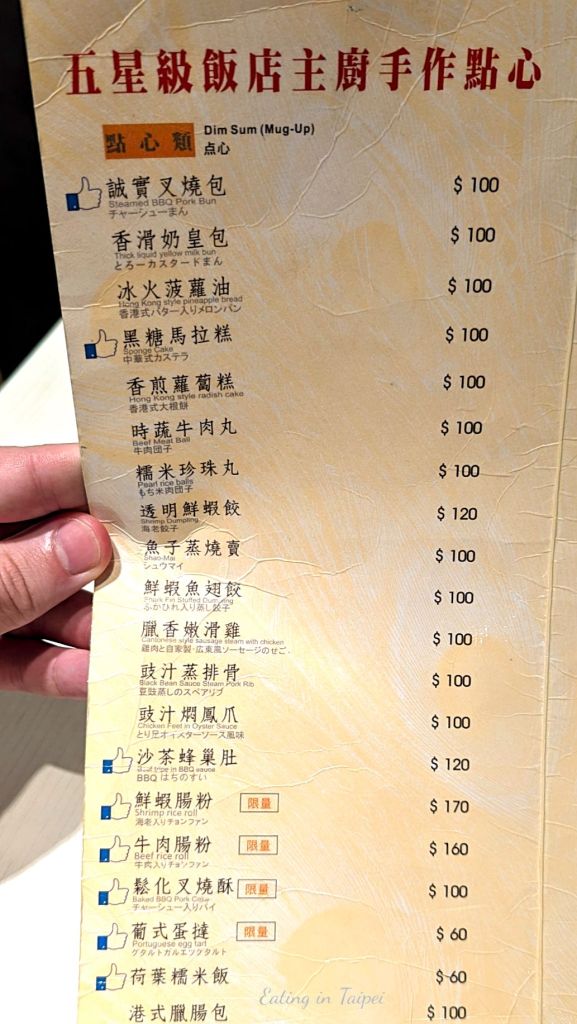 五星級飯店主廚手作點心
點心類 Dim Sum (Mug-Up)
点心
誠實叉燒包 $ 100
Steamed BBQ Pork Bun
チャーシューまん
香滑奶皇包 $ 100
Thick liquid yellow milk bun
とろーカスタードまん
冰火菠蘿油 $ 100
Hong Kong style pineapple bread
香港式バター入りメロンパン
黑糖馬拉糕 $ 100
Sponge Cake
中華式カステラ
香煎蘿蔔糕 $ 100
Hong Kong style radish cake
香港式大根餅
時蔬牛肉丸 $ 100
Beef Meat Ball
牛肉団子
糯米珍珠丸 $ 100
Pearl rice balls
もち米肉団子
透明鮮蝦餃 $ 120
Shrimp Dumpling
海老餃子
魚子蒸燒賣 $ 100
Shao-Mai
シュウマイ
鮮蝦魚翅餃 $ 100
Shark Fin Stuffed Dumpling
ふかひれ入り蒸し餃子
臘香嫩滑雞 $ 100
Cantonese style sausage steam with chicken
雞肉と自家製・広東風ソーセージのせご
豉汁蒸排骨 $ 100
Black Bean Sauce Steam Pork Rib
豆豉蒸しのスペアリブ
豉汁燜鳳爪 $ 100
Chicken Feet in Oyster Sauce
とり足オイスターソース風味
沙茶蜂巢肚 $ 120
Beef tripe in BBQ sauce
BBQ はちのすい
鮮蝦腸粉 限量 $ 170
Shrimp rice roll
海老入りチョンファン
牛肉腸粉 限量 $ 160
Beef rice roll
牛肉入りチョンファン
鬆化叉燒酥 限量 $ 100
Baked BBQ Pork Cake
チャーシュー入りパイ
葡式蛋撻 限量 $ 60
Portuguese egg tart
グタルトガルエッグタルト
荷葉糯米飯 $ 60
港式臘腸包 $ 100
Eating in Taipei